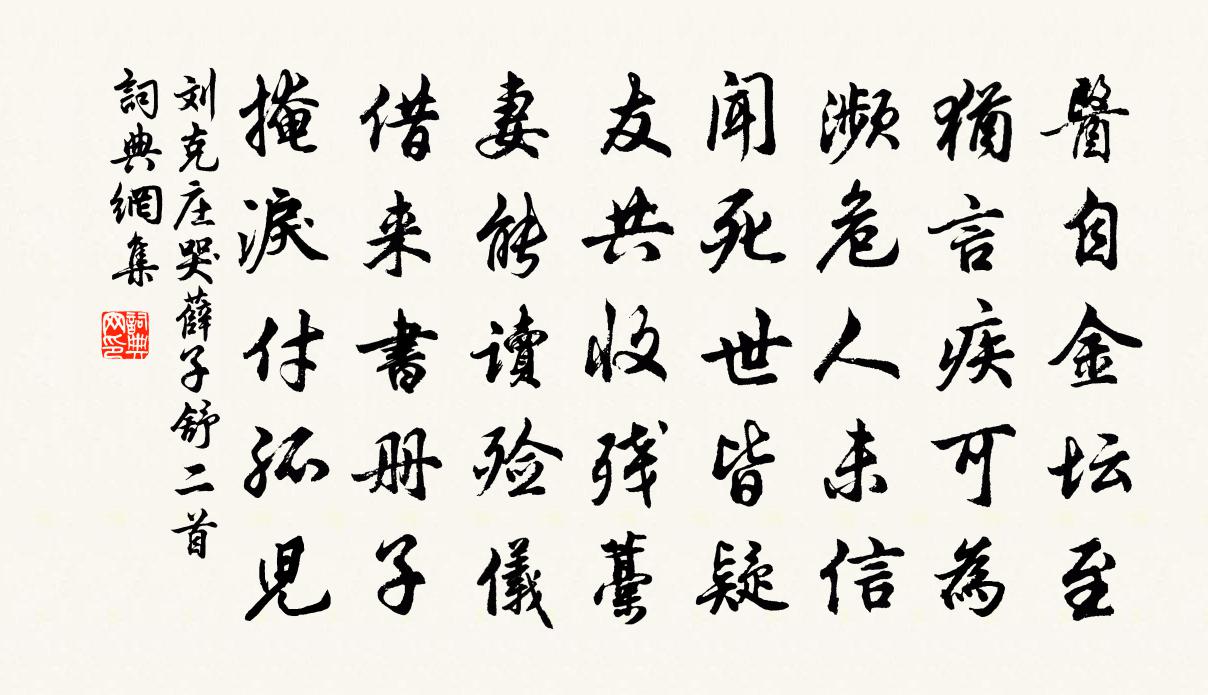 醫自金坛至
猶言疾可為
濒危人未信
闻死世皆疑
友共收残藁
妻能讀殓儀
借来書册子
掩淚付孤児
刘克庄哭薛子舒二首
詞典網集
詞典网印